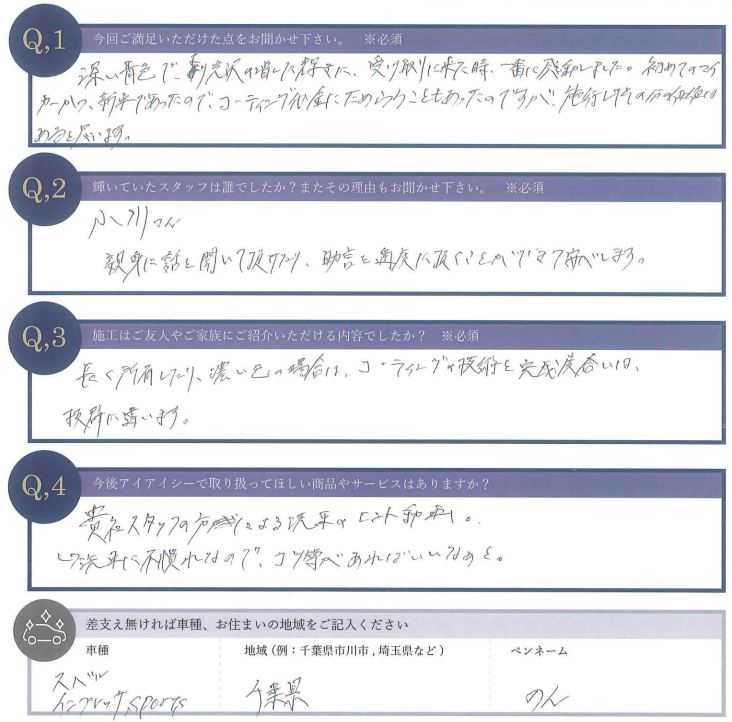 Q,1 今回ご満足いただけた点をお聞かせ下さい。 ※必須
深い青色で、光沢の増した輝きに、受け取りに来た時、一番に感動しました。初めてのマイ
カーかつ、新車であったので、コーティング代金にためらうこともあったのですが、施行してその分の価値は
あると思います。
Q,2 輝いていたスタッフは誰でしたか？またその理由もお聞かせ下さい。 ※必須
さん
親身に話を聞いて頂けたり、助言を適度に頂くことができて
Q,3 施工はご友人やご家族にご紹介いただける内容でしたか？ ※必須
長く所有したり、濃い色の場合は、コーティングの技術を完成度合いは、
抜群に違います。
Q,4 今後アイアイシーで取り扱ってほしい商品やサービスはありますか？
貴社スタッフの方による洗車のヒント動画。
洗車に不慣れなので、コツ等があればいいなあと。
差支え無ければ車種、お住まいの地域をご記入ください
車種 地域（例：千葉県市川市,埼玉県など） ペンネーム
スバル
インプレッサSports 千葉県 のん